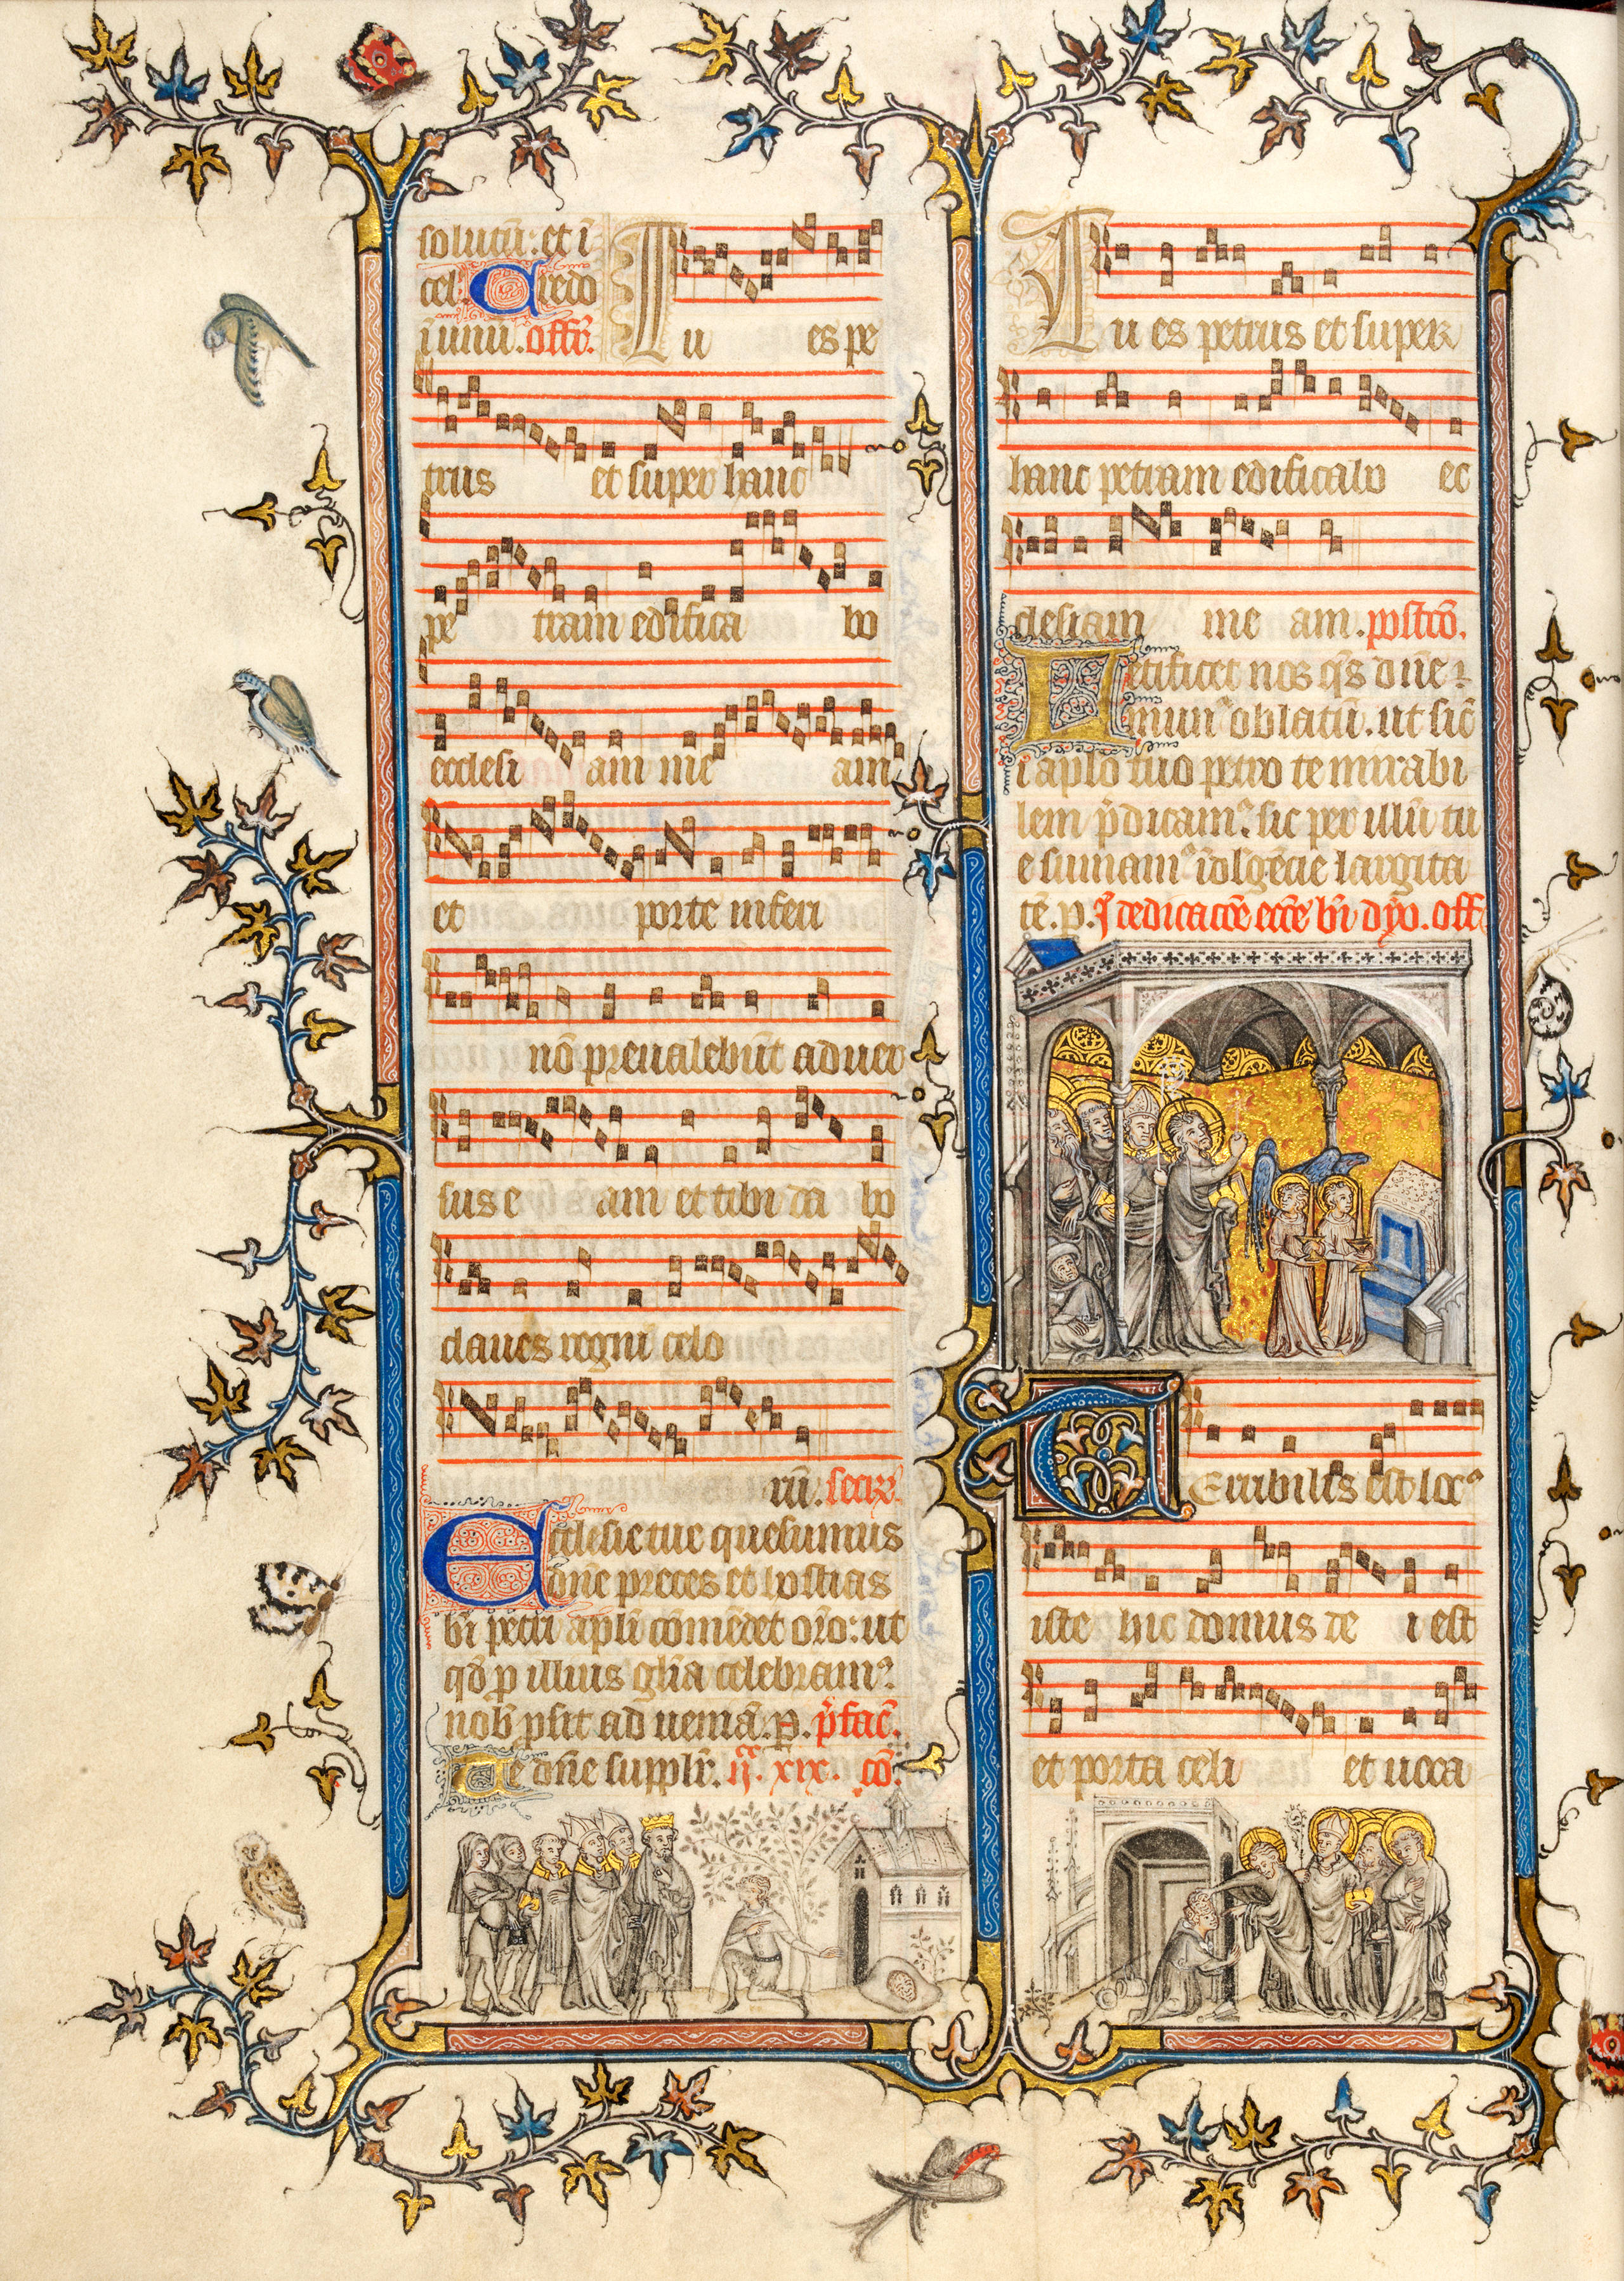 solutū: et ī
cel. Credo
ī unū. offr̄.
Tu es pe
trus et super hanc
pe tram edifica bo
ecclesi am me am
et porte inferi
nō preualebūt aduer
sus e am et tibi da bo
claues regni celo
rū. secr̄.
Ecclesie tue quesumus
dn̄e preces et hostias
bī petri apl̄i cōmēdet orō: ut
qd̄ p illius glīa celebram᷒
nob̄ psit ad ueniā. p. p̄fac̄.
Te dn̄e supplr̄. ii. xix. cō.
Tu es petrus et super
hanc petram edificabo ec
clesiam me am. postcō.
Letificet nos q̄s dn̄e:
mun᷒ oblatū. ut sic̄
ī aplō tuo petro te mirabi
lem p̄dicam᷒. sic per illū tu
e sumam᷒ īdlgēcie largita
tē. p. J dedicacōe ecc̄e bī dyo. off
TErribilis est loc᷒
iste hic domus de i est
et porta celi et uoca